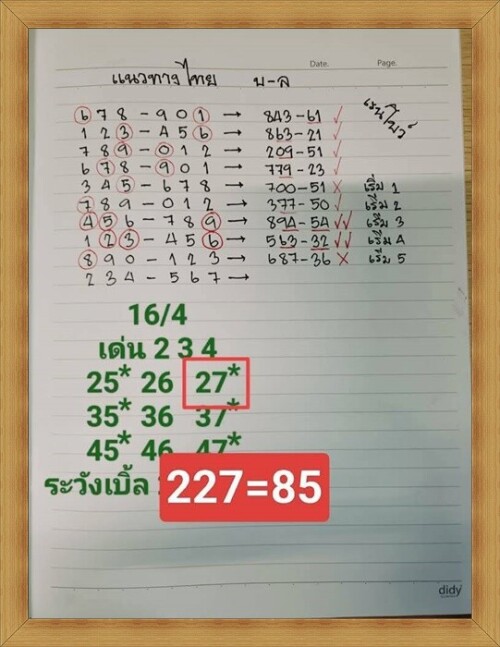 Date. Page.
แนวทางไทย บ-ล
678-901→ 843-61 ✓
123-456→ 863-21 ✓
789-012→ 209-51 ✓
678-901→ 779-23 ✓
345-678→ 700-51 × เริ่ม 1
789-012→ 377-50 ✓ เริ่ม 2
456-789→ 894-54 ✓✓ เริ่ม 3
123-456→ 563-32 ✓✓ เริ่ม 4
890-123→ 687-36 × เริ่ม 5
234-567→
16/4
เด่น 2 3 4
25* 26 27*
35* 36 37*
45* 46 47*
ระวังเบิ้ล
227=85
didy